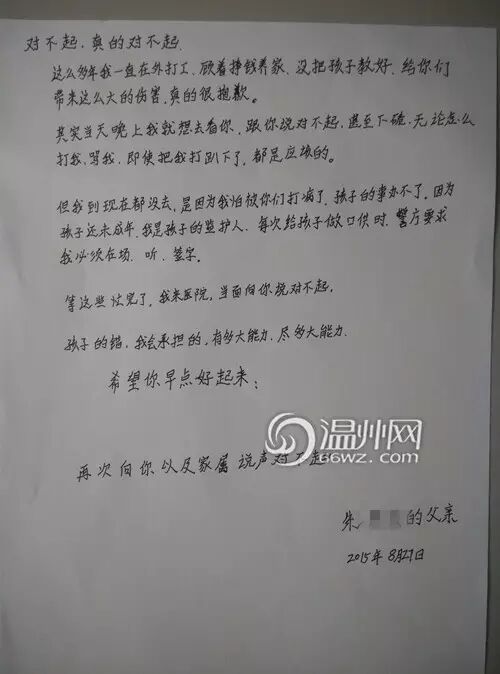 对不起．真的对不起．
这么多年我一直在外打工．顾着挣钱养家．没把孩子教好．给你们
带来这么大的伤害．真的很抱歉。
其实当天晚上我就想去看你．跟你说对不起．甚至下磕．无论怎么
打我．骂我．即使把我打趴下了．都是应该的。
但我到现在都没去．是因为我怕被你们打病了．孩子的事办不了。因为
孩子还未成年．我是孩子的监护人．每次给孩子做口供时．警方要求
我必须在场．听．签字。
等这些忙完了．我来医院．当面向你说对不起．
孩子的错．我会承担的．有多大能力．尽多大能力．
希望你早点好起来；
温州网
66wz.com
再次向你．以及家属说声对不起
朱 的父亲
2015年8月27日